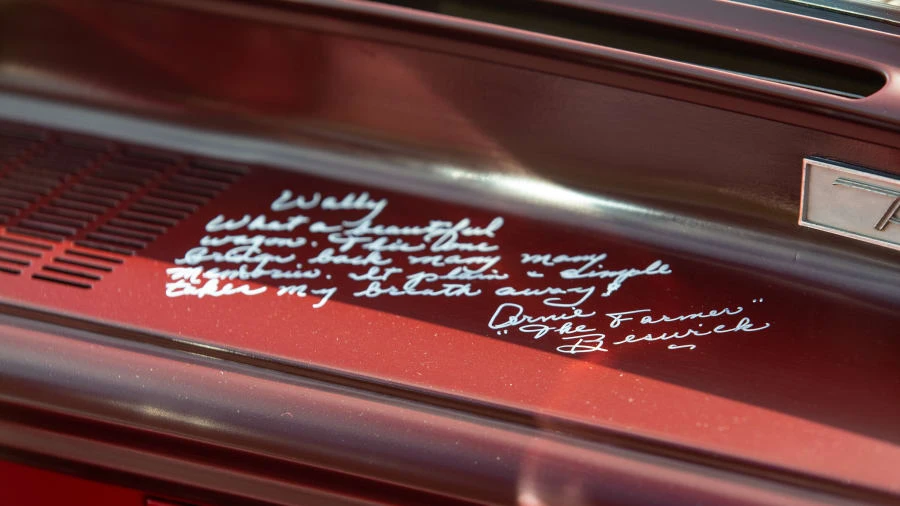 Wally
What a beautiful
wagon. This one
brings back many many
memories. It plain - simple
takes my breath away!
Arnie "The Farmer"
Beswick